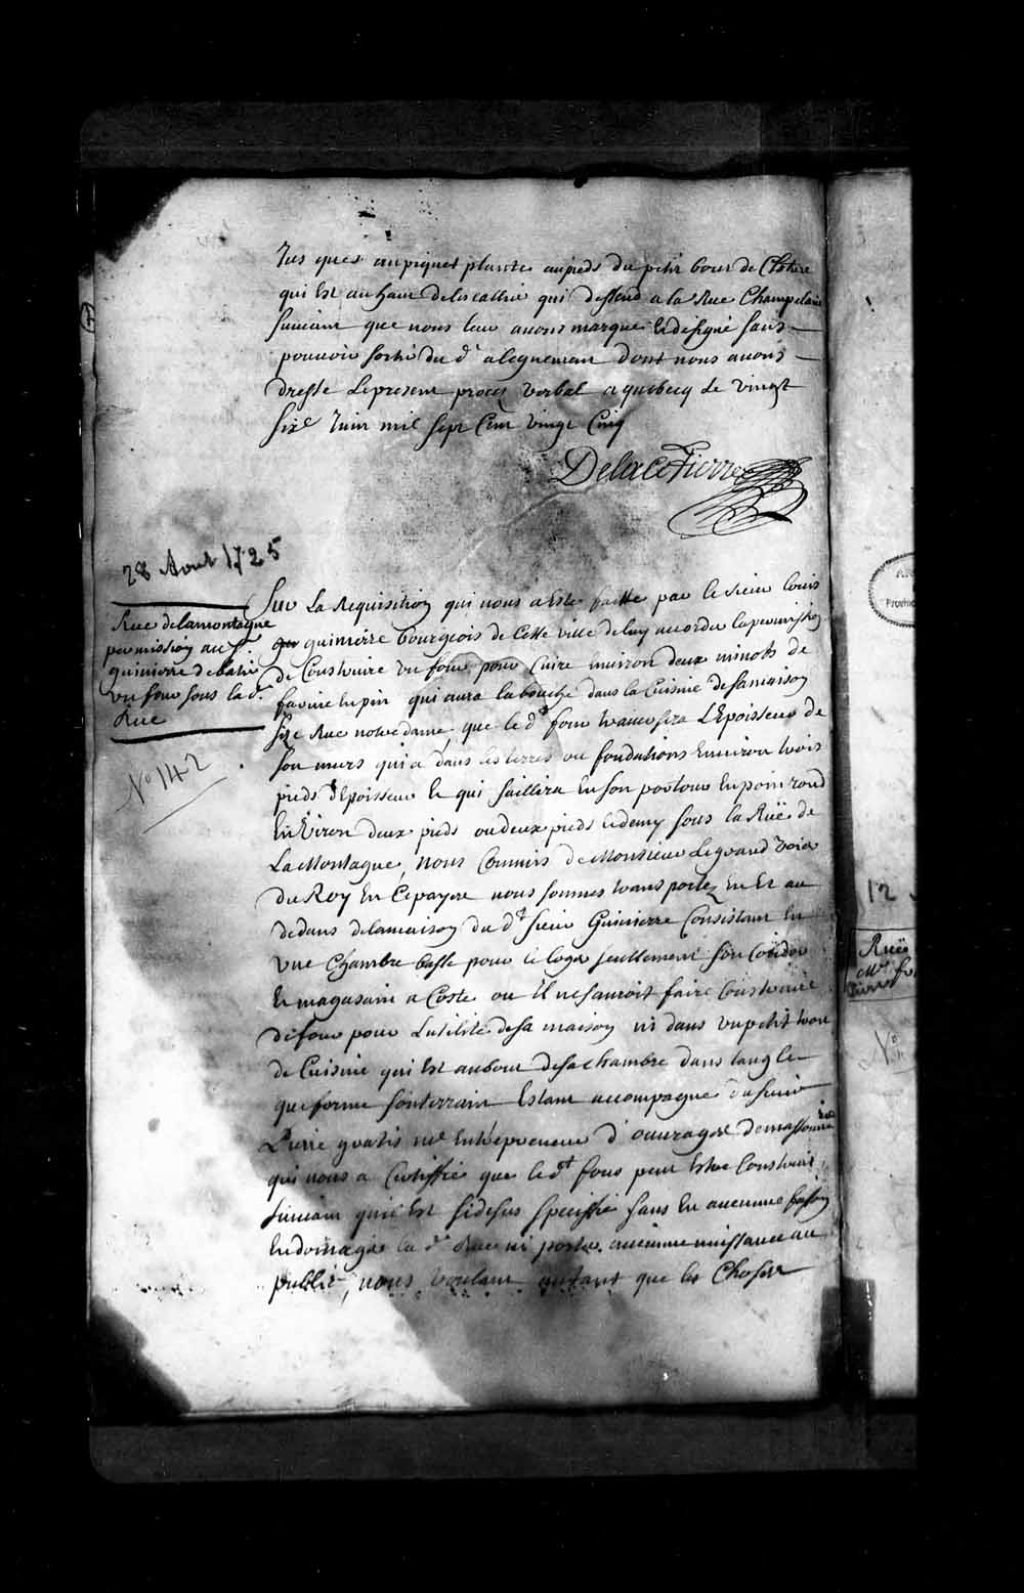 Jus ques au piquet plante au pieds du petit bout de Closture
qui Est au haut de lescallier qui dessend a la Rue Champelain
suivant que nous leur avons marqué Et designé sans
pouvoir sortir du dt alegnement dont nous avons
dressé le present procez verbal a quebecq le vingt
sixe Juin mil sept Cent vingt Cinq
Delacetierre
28 Aout 1725
Rue delamontagne
permission au Sr.
quinierre de batir
un four sous lad.
Rue
No 142
Sur La Requisition qui nous a Esté faitte par le Sieur Louis
quinierre bourgeois de Cette ville deluy accorder la permission
de Construire un four pour Cuire environ deux minots de
farine En pin qui aura la bouche dans la Cuisine de sa maison
size Rue notre dame, que le dt four traversera L'Epoisseur de
son murs qui a dans les terres ou fondations Environ trois
pieds d'Epoisseur Et qui saillira En son pourtour En poin rond
En Viron deux pieds ou deux pieds Et demy sous la Ruë de
La Montagne, nous Commis de Monsieur Le grand Voier
du Roy En Ce payere nous sommes transportez En Et au
dedans de la maison du dt Sieur Guinierre Consistant En
une Chambre basse pour ce loger seullement son Coridor
Et magasain a Costé ou Il ne sauroit faire Construire
de four pour Lutilité de sa maison ni dans un petit trou
de Cuisine qui Est au bout de sa chambre dans langle
que forme sonterrain Estant accompagné du sieur
Pierre gratis me Entrepreneur d'ouvragese de massonnerie
qui nous a Certiffié que le dt four peut Estre Construit
suivant qu'il Est sidesus speciffié sans En aucunne fasson
Endomager la dt Rue ni porter aucunne nuissance au
public, nous voulant autant que les Chosse
12
Ruë